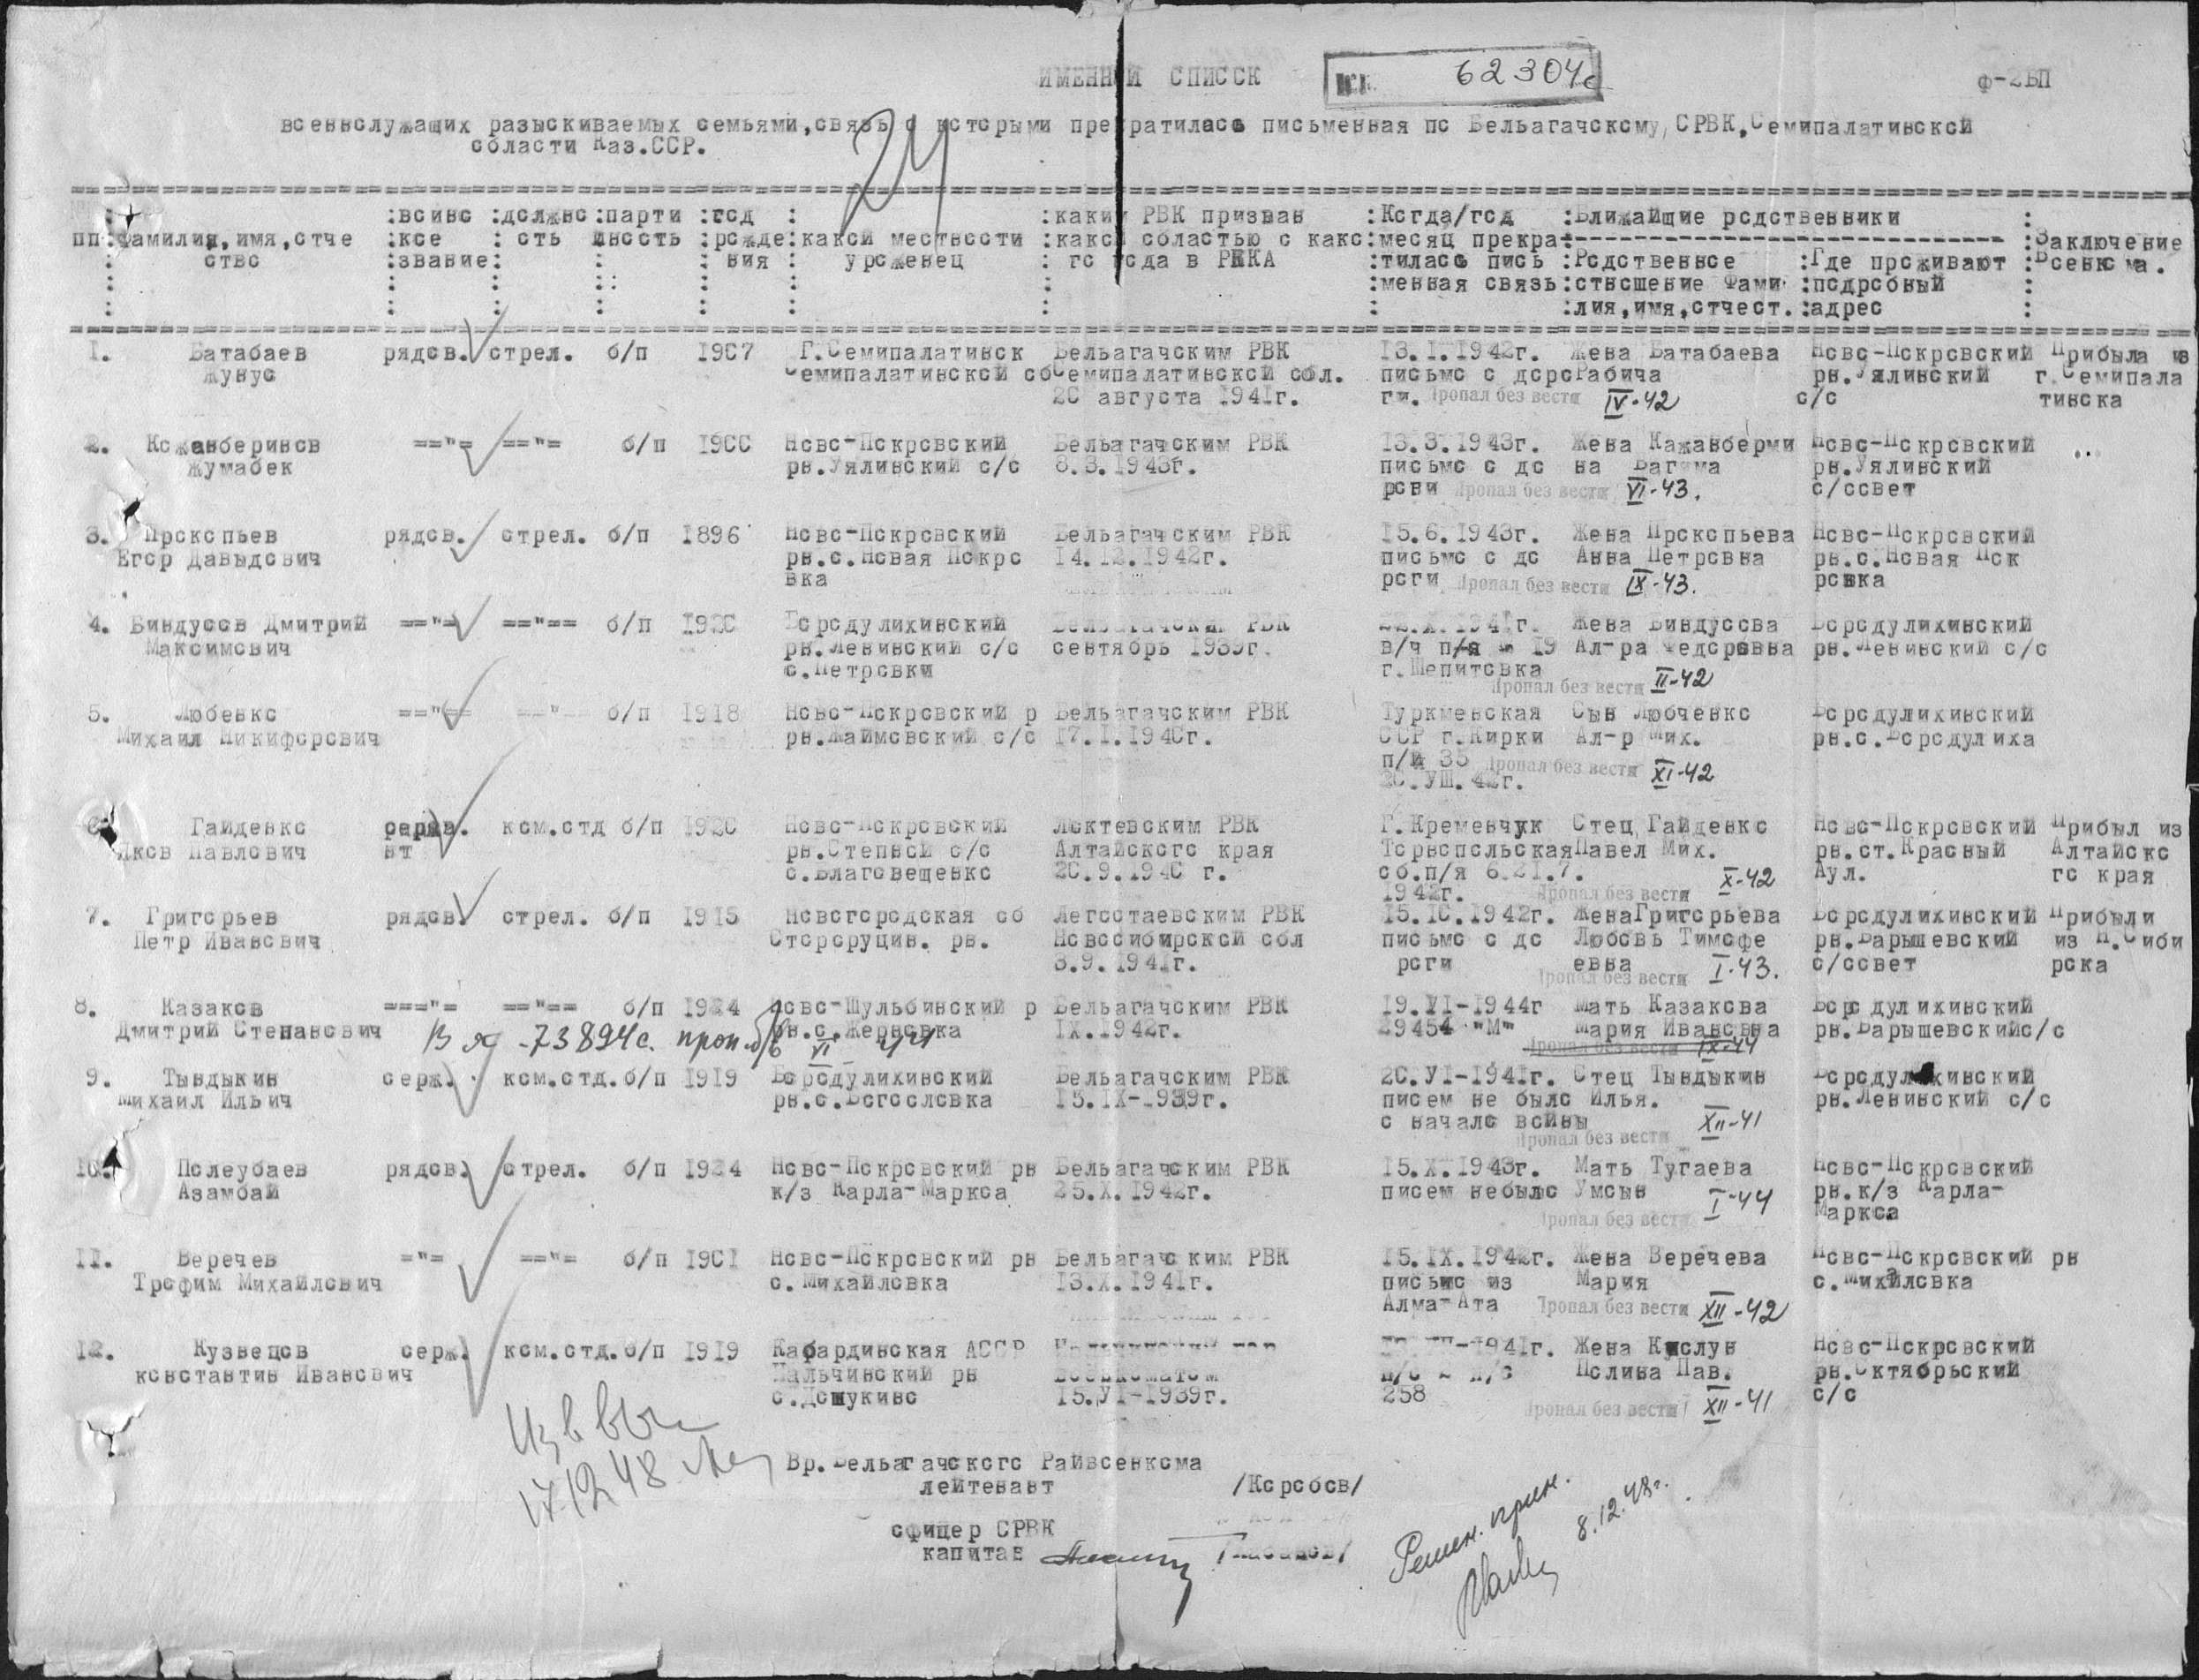 ИМЕННОЙ СПИСОК
62304с
ф-2БП
военнослужащих разыскиваемых семьями,связь с которыми прекратилась письменная по Бельагачскому, СРВК,Семипалатинской
области Каз.ССР.
24
пп:Фамилия,имя,отчество :воинское звание: :должность :партийность :год рождения :какой местности уроженец :каким РВК призван какой областью с какого года в РККА :Когда/год месяц прекратилась письменная связь :Ближайшие родственники :Родственное отношение Фамилия,имя,отчест. :Где проживают подробный адрес :Заключение Военкома.
1. Батабаев рядов. стрел. б/п 1907 Г.Семипалатинск Бельагачским РВК 13.1.1942г. Жена Батабаева Ново-Покровский Прибыла из
Жунус Семипалатинской об Семипалатинской обл. письмо с доро Рабича рн.Уялинский г.Семипала
20 августа 1941г. ги. Пропал без вести IV-42 с/с тинска
2. Кожанберинов =="= =="= б/п 1900 Ново-Покровский Бельагачским РВК 13.3.1943г. Жена Кажанберми Ново-Покровский
Жумабек рн.Уялинский с/с 8.3.1943г. письмо с до на Багима рн.Уялинский
роги Пропал без вести VI-43. с/совет
3. Прокопьев рядов. стрел. б/п 1896 Ново-Покровский Бельагачским РВК 15.6.1943г. Жена Прокопьева Ново-Покровский
Егор Давыдович рн.с.Новая Покро 14.12.1942г. письмо с до Анна Петровна рн.с.Новая Пок
вка роги Пропал без вести IX-43. ровка
4. Виндусов Дмитрий =="= =="== б/п 1920 Бородулихинский Бельагачским РВК 22.X.1941г. Жена Виндусова Бородулихинский
Максимович рн.Ленинский с/с сентябрь 1939г. в/ч п/я 19 Ал-ра Федоровна рн.Ленинский с/с
с.Петровки г.Шепитовка
Пропал без вести II-42
5. Любенко =="== ==" б/п 1918 Ново-Покровский р Бельагачским РВК Туркменская Сын Любченко Бородулихинский
Михаил Никифорович рн.Жаймовский с/с 17.1.1940г. ССР г.Кирки Ал-р Мих. рн.с.Бородулиха
п/я 35 Пропал без вести XI-42
20.УШ.42г.
6. Гайденко сержа. ком.отд б/п 1920 Ново-Покровский Локтевским РВК Г.Кременчук Отец Гайденко Ново-Покровский Прибыл из
Яков Павлович нт рн.Степной с/с Алтайского края Торнопольская Павел Мих. рн.ст.Красный Алтайско
с.Благовещенко 20.9.1940 г. об.п/я 6.21.7. Аул. го края
1942г. Пропал без вести X-42
7. Григорьев рядов. стрел. б/п 1915 Новогородская об Легостаевским РВК 15.10.1942г. Жена Григорьева Бородулихинский Прибыли
Петр Иванович Сторсруцин. рн. Новосибирской обл письмо с до Любовь Тимофе рн.Барышевский из Н.Сиби
3.9.1941г. роги евна с/совет рска
Пропал без вести I-43.
8. Казаков ==="= =="== б/п 1924 Ново-Шульбинский р Бельагачским РВК 19.VI-1944г Мать Казакова Бородулихинский
Дмитрий Степанович рн.с.Жерновка IX.1942г. 29454 "М" Мария Ивановна рн.Барышевский с/с
Вх -73894с. проп.б/в VI 44 Пропал без вести IX-44
9. Тындыкин серж. ком.отд. б/п 1919 Бородулихинский Бельагачским РВК 20.УI-1941г. Отец Тындыкин Бородулихинский
Михаил Ильич рн.с.Богословка 15.IX-1939г. писем не было Илья. рн.Ленинский с/с
с начало войны
Пропал без вести XII-41
10. Полеубаев рядов. стрел. б/п 1924 Ново-Покровский рн Бельагачским РВК 15.X.1943г. Мать Тугаева Ново-Покровский
Азамбай к/з Карла-Маркса 25.X.1942г. писем небыло Умсын рн.к/з Карла-
Пропал без вести I-44 Маркса
11. Веречев ="= =="= б/п 1901 Ново-Покровский рн Бельагачским РВК 15.IX.1942г. Жена Веречева Ново-Покровский рн
Трофим Михайлович с.Михайловка 13.X.1941г. письмо из Мария с.Михайловка
Алма-Ата Пропал без вести XII-42
12. Кузнецов серж. ком.отд. б/п 1919 Кабардинская АССР 1941г. Жена Кислун Ново-Покровский
константин Иванович Нальчинский рн военкоматом Полина Пав. рн.Октябрьский
с.Дошукино 15.УI-1939г. 258 с/с
Пропал без вести XII-41
17.12.48.
Вр.Бельагачского Райвоенкома
лейтенант /Коробов/
офицер СРВК
капитан
Решен. прин.
8.12.48г.